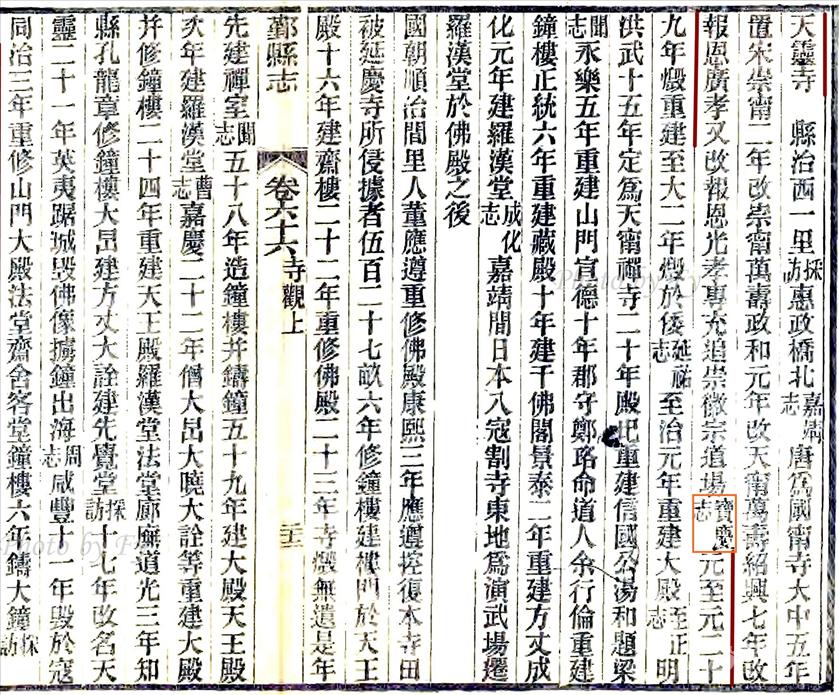 天靈寺　縣治西一里採訪惠政橋北嘉靖志唐爲國甯寺大中五年
置宋崇甯二年改崇甯萬壽政和元年改天甯萬壽紹興七年改
報恩廣孝又改報恩光孝專充追崇徽宗道場寶慶志元至元二十
九年燬重建至大二年燬於倭延祐志至治元年重建大殿至正志明
洪武十五年定爲天甯禪寺二十年殿圮重建信國公湯和題梁
聞志永樂五年重建山門宣德十年郡守鄭珞命道人余行倫重建
鐘樓正統六年重建藏殿十年建千佛閣景泰二年重建方丈成
化元年建羅漢堂成化志　嘉靖間日本入寇割寺東地爲演武場遷
羅漢堂於佛殿之後
國朝順治間里人董應遵重修佛殿康熙三年應遵控復本寺田
被延慶寺所侵據者伍百二十七畝六年修鐘樓建樓門於天王
殿十六年建齋樓二十二年重修佛殿二十三年寺燬無遺是年
鄞縣志　卷六十六　寺觀上
先建禪室聞志五十八年造鐘樓并鑄鐘五十九年建大殿天王殿
次年建羅漢堂曹志嘉慶二十二年僧大昌大曉大詮等重建大殿
并修鐘樓二十四年重建天王殿羅漢堂法堂廊廡道光三年知
縣孔龍章修鐘樓大昌建方丈大詮建先覺堂採訪十七年改名天
靈二十一年英夷踞城毀佛像擄鐘出海周志咸豐十一年毀於寇
同治三年重修山門大殿法堂齋舍客堂鐘樓六年鑄大鐘採訪